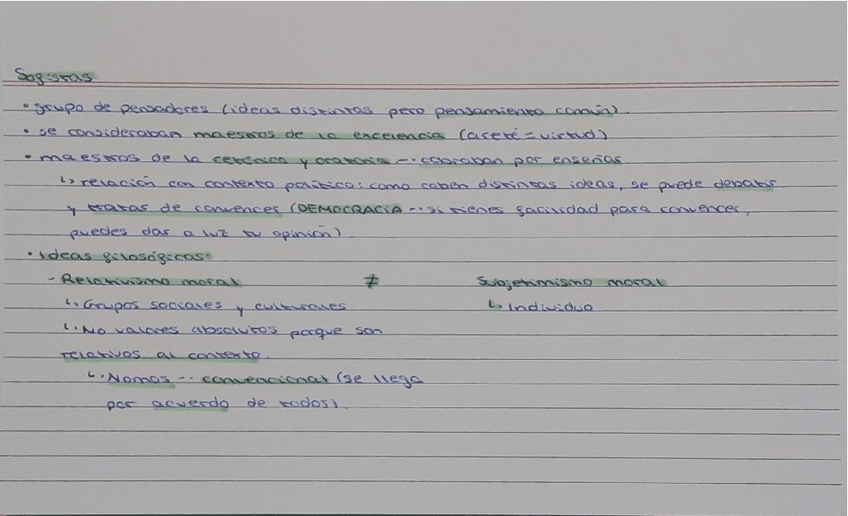 Sofistas
• grupo de pensadores (ideas distintas pero pensamiento común)
• se consideraban maestros de la excelencia (areté = virtud)
• maestros de la retórica y oratoria -- cobraban por enseñar
↳ relación con contexto político: como caben distintas ideas, se puede debatir
y tratar de convencer (DEMOCRACIA -- si tienes facilidad para convencer,
puedes dar a luz tu opinión).
• Ideas filosóficas:
- Relativismo moral ≠ Subjetivismo moral
↳ Grupos sociales y culturales ↳ Individuo
↳ No valores absolutos porque son
relativos al contexto.
↳ Nomos -- convencional (se llega
por acuerdo de todos).